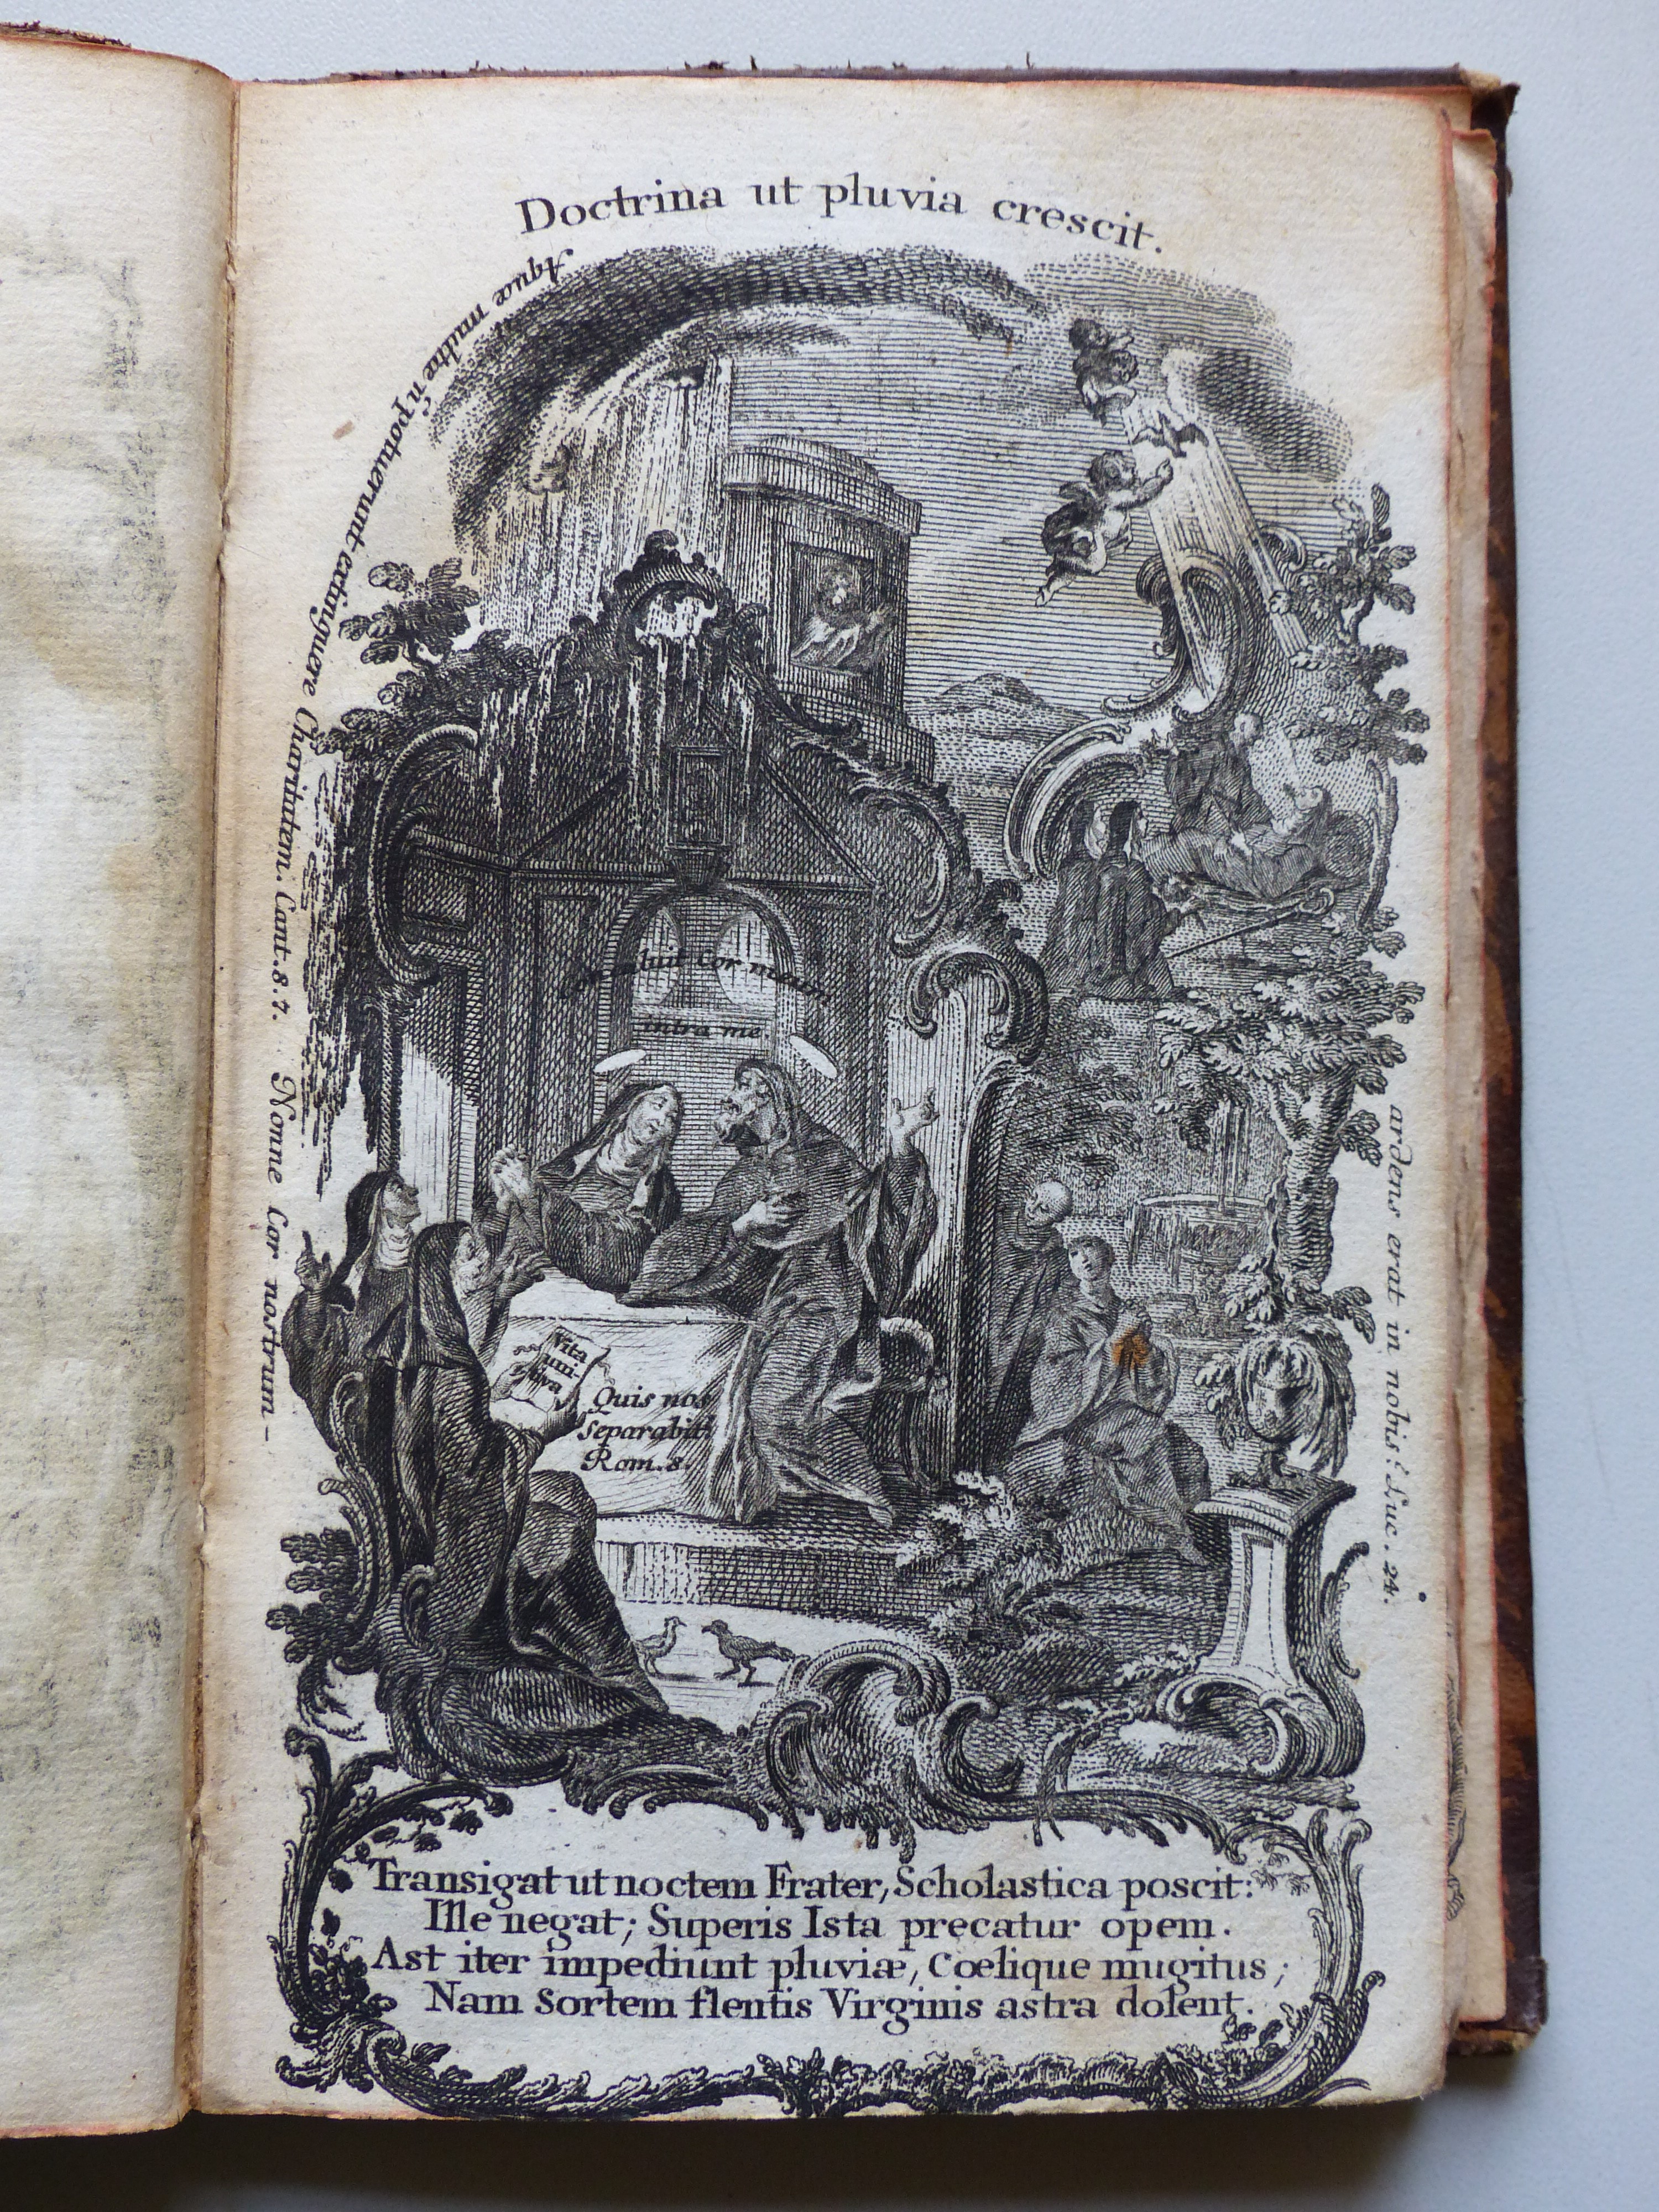 Doctrina ut pluvia crescit.
Aquæ multæ ñ potuerunt extinguere Charitatem. Cant. 8. 7. Nonne Cor nostrum-
ardens erat in nobis? Luc. 24.
Cor meum
intra me
Vita
uni-
tiva
Quis nos
Separabit?
Rom. 8.
Transigat ut noctem Frater, Scholastica poscit:
Ille negat; Superis Ista precatur opem.
Ast iter impediunt pluviæ, Coelique mugitus;
Nam Sortem flentis Virginis astra dolent.